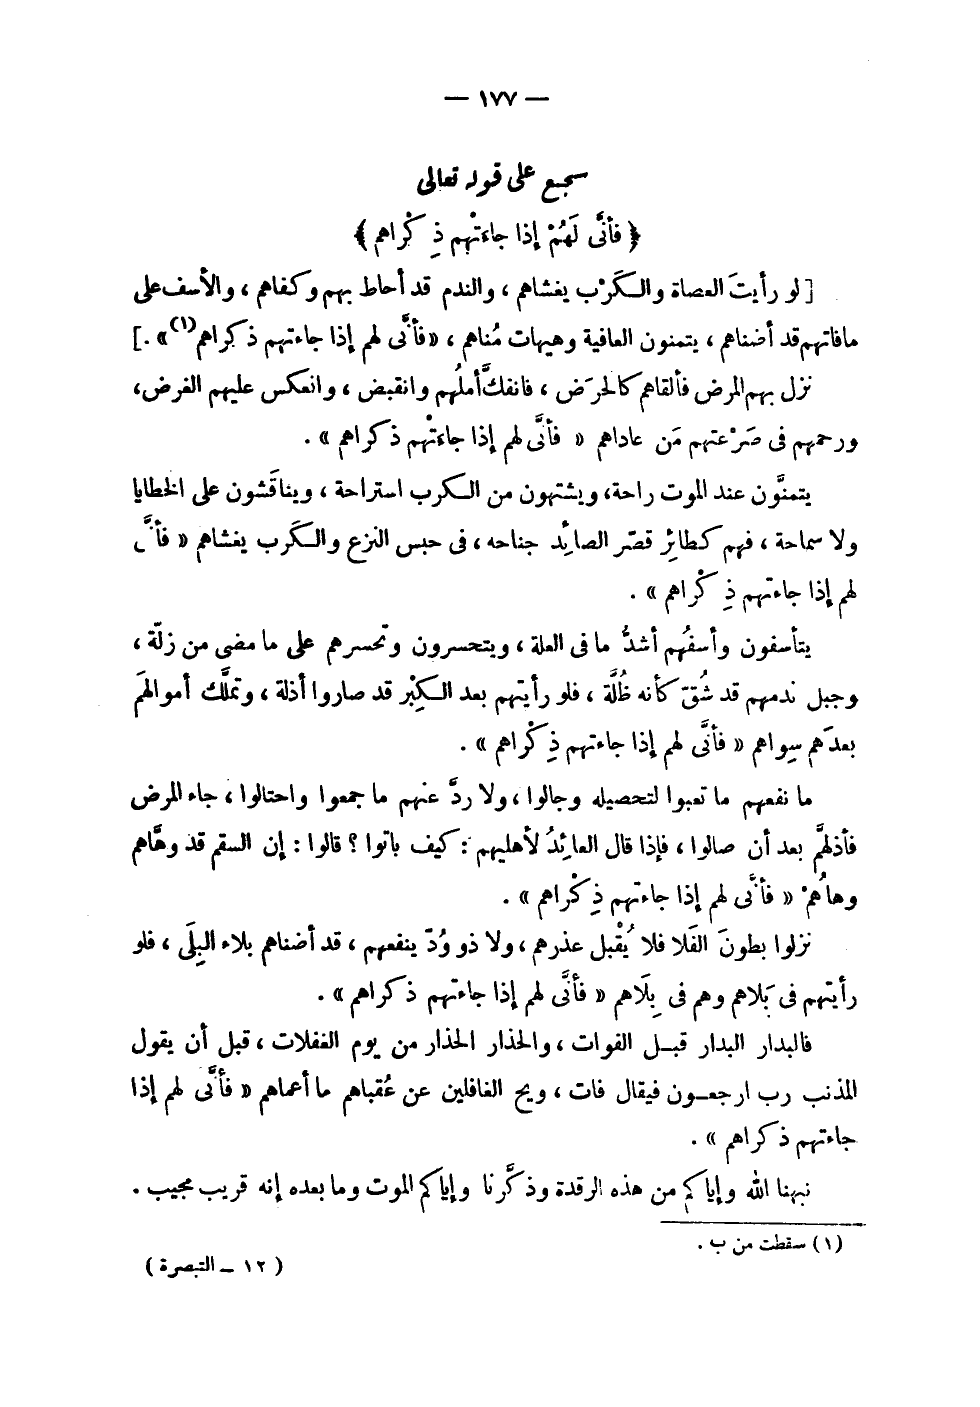 — ١٧٧ —
سجع على قوله تعالى
﴿ فأنَّى لَهُمْ إذا جاءتْهم ذِكْراهم ﴾
[ لو رأيتَ العصاة والكَرْب يغشاهم ، والندم قد أحاط بهم وكفاهم ، والأسف على
مافاتهم قد أضناهم ، يتمنون العافية وهيهات مُناهم ، «فأنَّى لهم إذا جاءتهم ذكراهم(١)» . ]
نزل بهم المرض فألقاهم كالحرَض ، فانفكَّ أملُهم وانقبض ، وانعكس عليهم الغرض،
ورحمهم فى صَرْعتهم مَن عاداهم « فأنَّى لهم إذا جاءتْهم ذكراهم » .
يتمنَّون عند الموت راحة، ويشتهون من الكرب استراحة ، ويناقَشون على الخطايا
ولا سماحة ، فهم كطائِر قصّر الصائِد جناحه ، فى حبس النزع والكَرب يغشاهم « فأنَّى
لهم إذا جاءتهم ذِكْراهم » .
يتأسفون وأسفُهم أشدُّ ما فى العلة ، ويتحسرون وتحسرهم على ما مضى من زلّة ،
وجبل ندمهم قد شُقّ كأنه ظُلَّة ، فلو رأيتهم بعد الكِبْر قد صاروا أذلة ، وتملَّك أموالهَم
بعدَهم سِواهم « فأنَّى لهم إذا جاءتهم ذِكْراهم » .
ما نفعهم ما تعبوا لتحصيله وجالوا ، ولا ردَّ عنهم ما جمعوا واحتالوا ، جاء المرض
فأذلهَّم بعد أن صالوا ، فإذا قال العائِدُ لأهليهم : كيف باتوا ؟ قالوا : إن السقم قد وهَّاهم
وهاهُمْ « فأنَّى لهم إذا جاءتهم ذِكْراهم » .
نزلوا بطونَ الفَلا فلا يُقْبل عذرهم ، ولا ذو وُدّ ينفعهم ، قد أضناهم بلاء البِلَى ، فلو
رأيتهم فى بَلاهم وهم فى بِلَاهم « فأنَّى لهم إذا جاءتهم ذكراهم » .
فالبدار البدار قبل الفوات ، والحذار الحذار من يوم الغفلات ، قبل أن يقول
المذنب رب ارجعون فيقال فات ، ويح الغافلين عن عُقباهم ما أعماهم « فأنَّى لهم إذا
جاءتهم ذكراهم » .
نبهنا الله وإياكم من هذه الرقدة وذكَّرنا وإياكم الموت وما بعده إنه قريب مجيب .
(١) سقطت من ب .
( ١٢ – التبصرة )